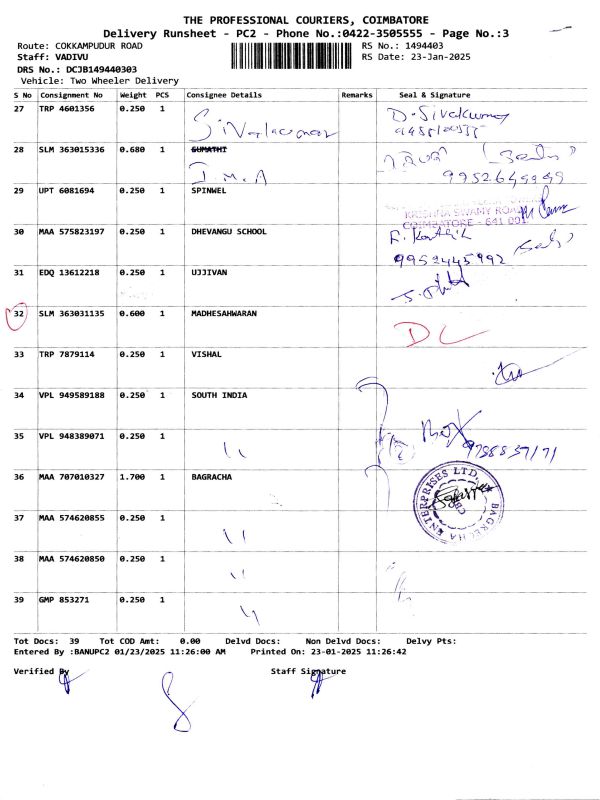 THE PROFESSIONAL COURIERS, COIMBATORE
Delivery Runsheet - PC2 - Phone No.:0422-3505555 - Page No.:3
Route: COKKAMPUDUR ROAD
RS No.: 1494403
Staff: VADIVU
RS Date: 23-Jan-2025
DRS No.: DCJB149440303
Vehicle: Two Wheeler Delivery
S No Consignment No Weight PCS Consignee Details Remarks Seal & Signature
27 TRP 4601356 0.250 1 Sivakumar D. Sivakumar
28 SLM 363015336 0.680 1 GUMATHI
I.M.A 9952649999
29 UPT 6081694 0.250 1 SPINWEL
KRISHNA SWAMY ROAD
COIMBATORE - 641 001
30 MAA 575823197 0.250 1 DHEVANGU SCHOOL
9952445992
31 EDQ 13612218 0.250 1 UJJIVAN
32 SLM 363031135 0.600 1 MADHESAHWARAN DC
33 TRP 7879114 0.250 1 VISHAL
34 VPL 949589188 0.250 1 SOUTH INDIA
35 VPL 948389071 0.250 1 "
36 MAA 707010327 1.700 1 BAGRACHA
BAGRECHA ENTERPRISES LTD.
CBE
37 MAA 574620855 0.250 1 "
38 MAA 574620850 0.250 1 "
39 GMP 853271 0.250 1 "
Tot Docs: 39 Tot COD Amt: 0.00 Delvd Docs: Non Delvd Docs: Delvy Pts:
Entered By :BANUPC2 01/23/2025 11:26:00 AM Printed On: 23-01-2025 11:26:42
Verified By Staff Signature